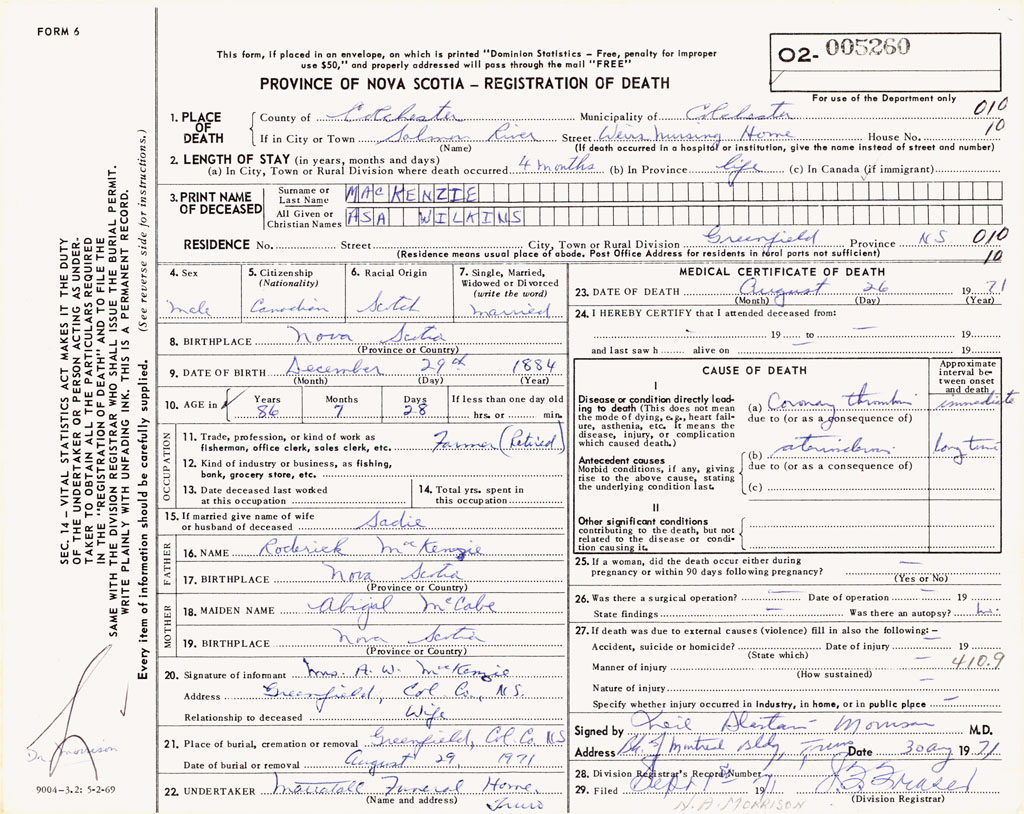 FORM 6
This form, if placed in an envelope, on which is printed "Dominion Statistics – Free, penalty for improper
use $50," and properly addressed will pass through the mail "FREE"
02- 005260
PROVINCE OF NOVA SCOTIA – REGISTRATION OF DEATH
For use of the Department only
1. PLACE OF DEATH
County of Colchester Municipality of Colchester 010
If in City or Town Salmon River Street Weirs Nursing Home House No. 10
(Name) (If death occurred in a hospital or institution, give the name instead of street and number)
2. LENGTH OF STAY (in years, months and days)
(a) In City, Town or Rural Division where death occurred 4 months (b) In Province life (c) In Canada (if immigrant)
3. PRINT NAME OF DECEASED
Surname or Last Name MACKENZIE
All Given or Christian Names ASA WILKINS
RESIDENCE No. Street City, Town or Rural Division Greenfield Province NS 010
(Residence means usual place of abode. Post Office Address for residents in rural parts not sufficient) 10
4. Sex
Male
5. Citizenship
(Nationality)
Canadian
6. Racial Origin
Scotch
7. Single, Married,
Widowed or Divorced
(write the word)
married
8. BIRTHPLACE Nova Scotia
(Province or Country)
9. DATE OF BIRTH December 29th 1884
(Month) (Day) (Year)
10. AGE in
Years Months Days If less than one day old
86 7 28 hrs. or min.
OCCUPATION
11. Trade, profession, or kind of work as
fisherman, office clerk, sales clerk, etc. Farmer (Retired)
12. Kind of industry or business, as fishing,
bank, grocery store, etc.
13. Date deceased last worked
at this occupation
14. Total yrs. spent in
this occupation
15. If married give name of wife
or husband of deceased Sadie
FATHER
16. NAME Roderick MacKenzie
17. BIRTHPLACE Nova Scotia
(Province or Country)
MOTHER
18. MAIDEN NAME Abigal McCabe
19. BIRTHPLACE Nova Scotia
(Province or Country)
20. Signature of informant Mrs. A. W. MacKenzie
Address Greenfield, Col Co., N.S.
Relationship to deceased Wife
21. Place of burial, cremation or removal Greenfield, Col. Co. NS
Date of burial or removal August 29 1971
22. UNDERTAKER Mattatall Funeral Home,
(Name and address) Truro
MEDICAL CERTIFICATE OF DEATH
23. DATE OF DEATH August 26 1971
(Month) (Day) (Year)
24. I HEREBY CERTIFY that I attended deceased from:
19 to 19
and last saw h alive on 19
CAUSE OF DEATH
Approximate
interval be-
tween onset
and death
I
Disease or condition directly lead-
ing to death (This does not mean
the mode of dying, e.g., heart fail-
ure, asthenia, etc. It means the
disease, injury, or complication
which caused death.)
(a) Coronary thrombosis immediate
due to (or as a consequence of)
Antecedent causes
Morbid conditions, if any, giving
rise to the above cause, stating
the underlying condition last.
(b) long time
due to (or as a consequence of)
(c)
II
Other significant conditions
contributing to the death, but not
related to the disease or condi-
tion causing it.
25. If a woman, did the death occur either during
pregnancy or within 90 days following pregnancy?
(Yes or No)
26. Was there a surgical operation? Date of operation 19
State findings Was there an autopsy? No
27. If death was due to external causes (violence) fill in also the following: –
Accident, suicide or homicide? Date of injury 19
(State which)
Manner of injury 410.9
(How sustained)
Nature of injury
Specify whether injury occurred in industry, in home, or in public place
Signed by Neil Alastair Morrison M.D.
Address Bk of Montreal Bldg, Truro Date 30 Aug 1971
28. Division Registrar's Record Number
29. Filed Sept 1st 1971
(Division Registrar)
N. A. MORRISON
SEC. 14 – VITAL STATISTICS ACT MAKES IT THE DUTY
OF THE UNDERTAKER OR PERSON ACTING AS UNDER-
TAKER TO OBTAIN ALL THE PARTICULARS REQUIRED
IN THE "REGISTRATION OF DEATH" AND TO FILE THE
SAME WITH THE DIVISION REGISTRAR WHO SHALL ISSUE THE BURIAL PERMIT.
WRITE PLAINLY WITH UNFADING INK. THIS IS A PERMANENT RECORD.
Every item of information should be carefully supplied. (See reverse side for instructions.)
Dr Morrison
9004-3.2: 5-2-69